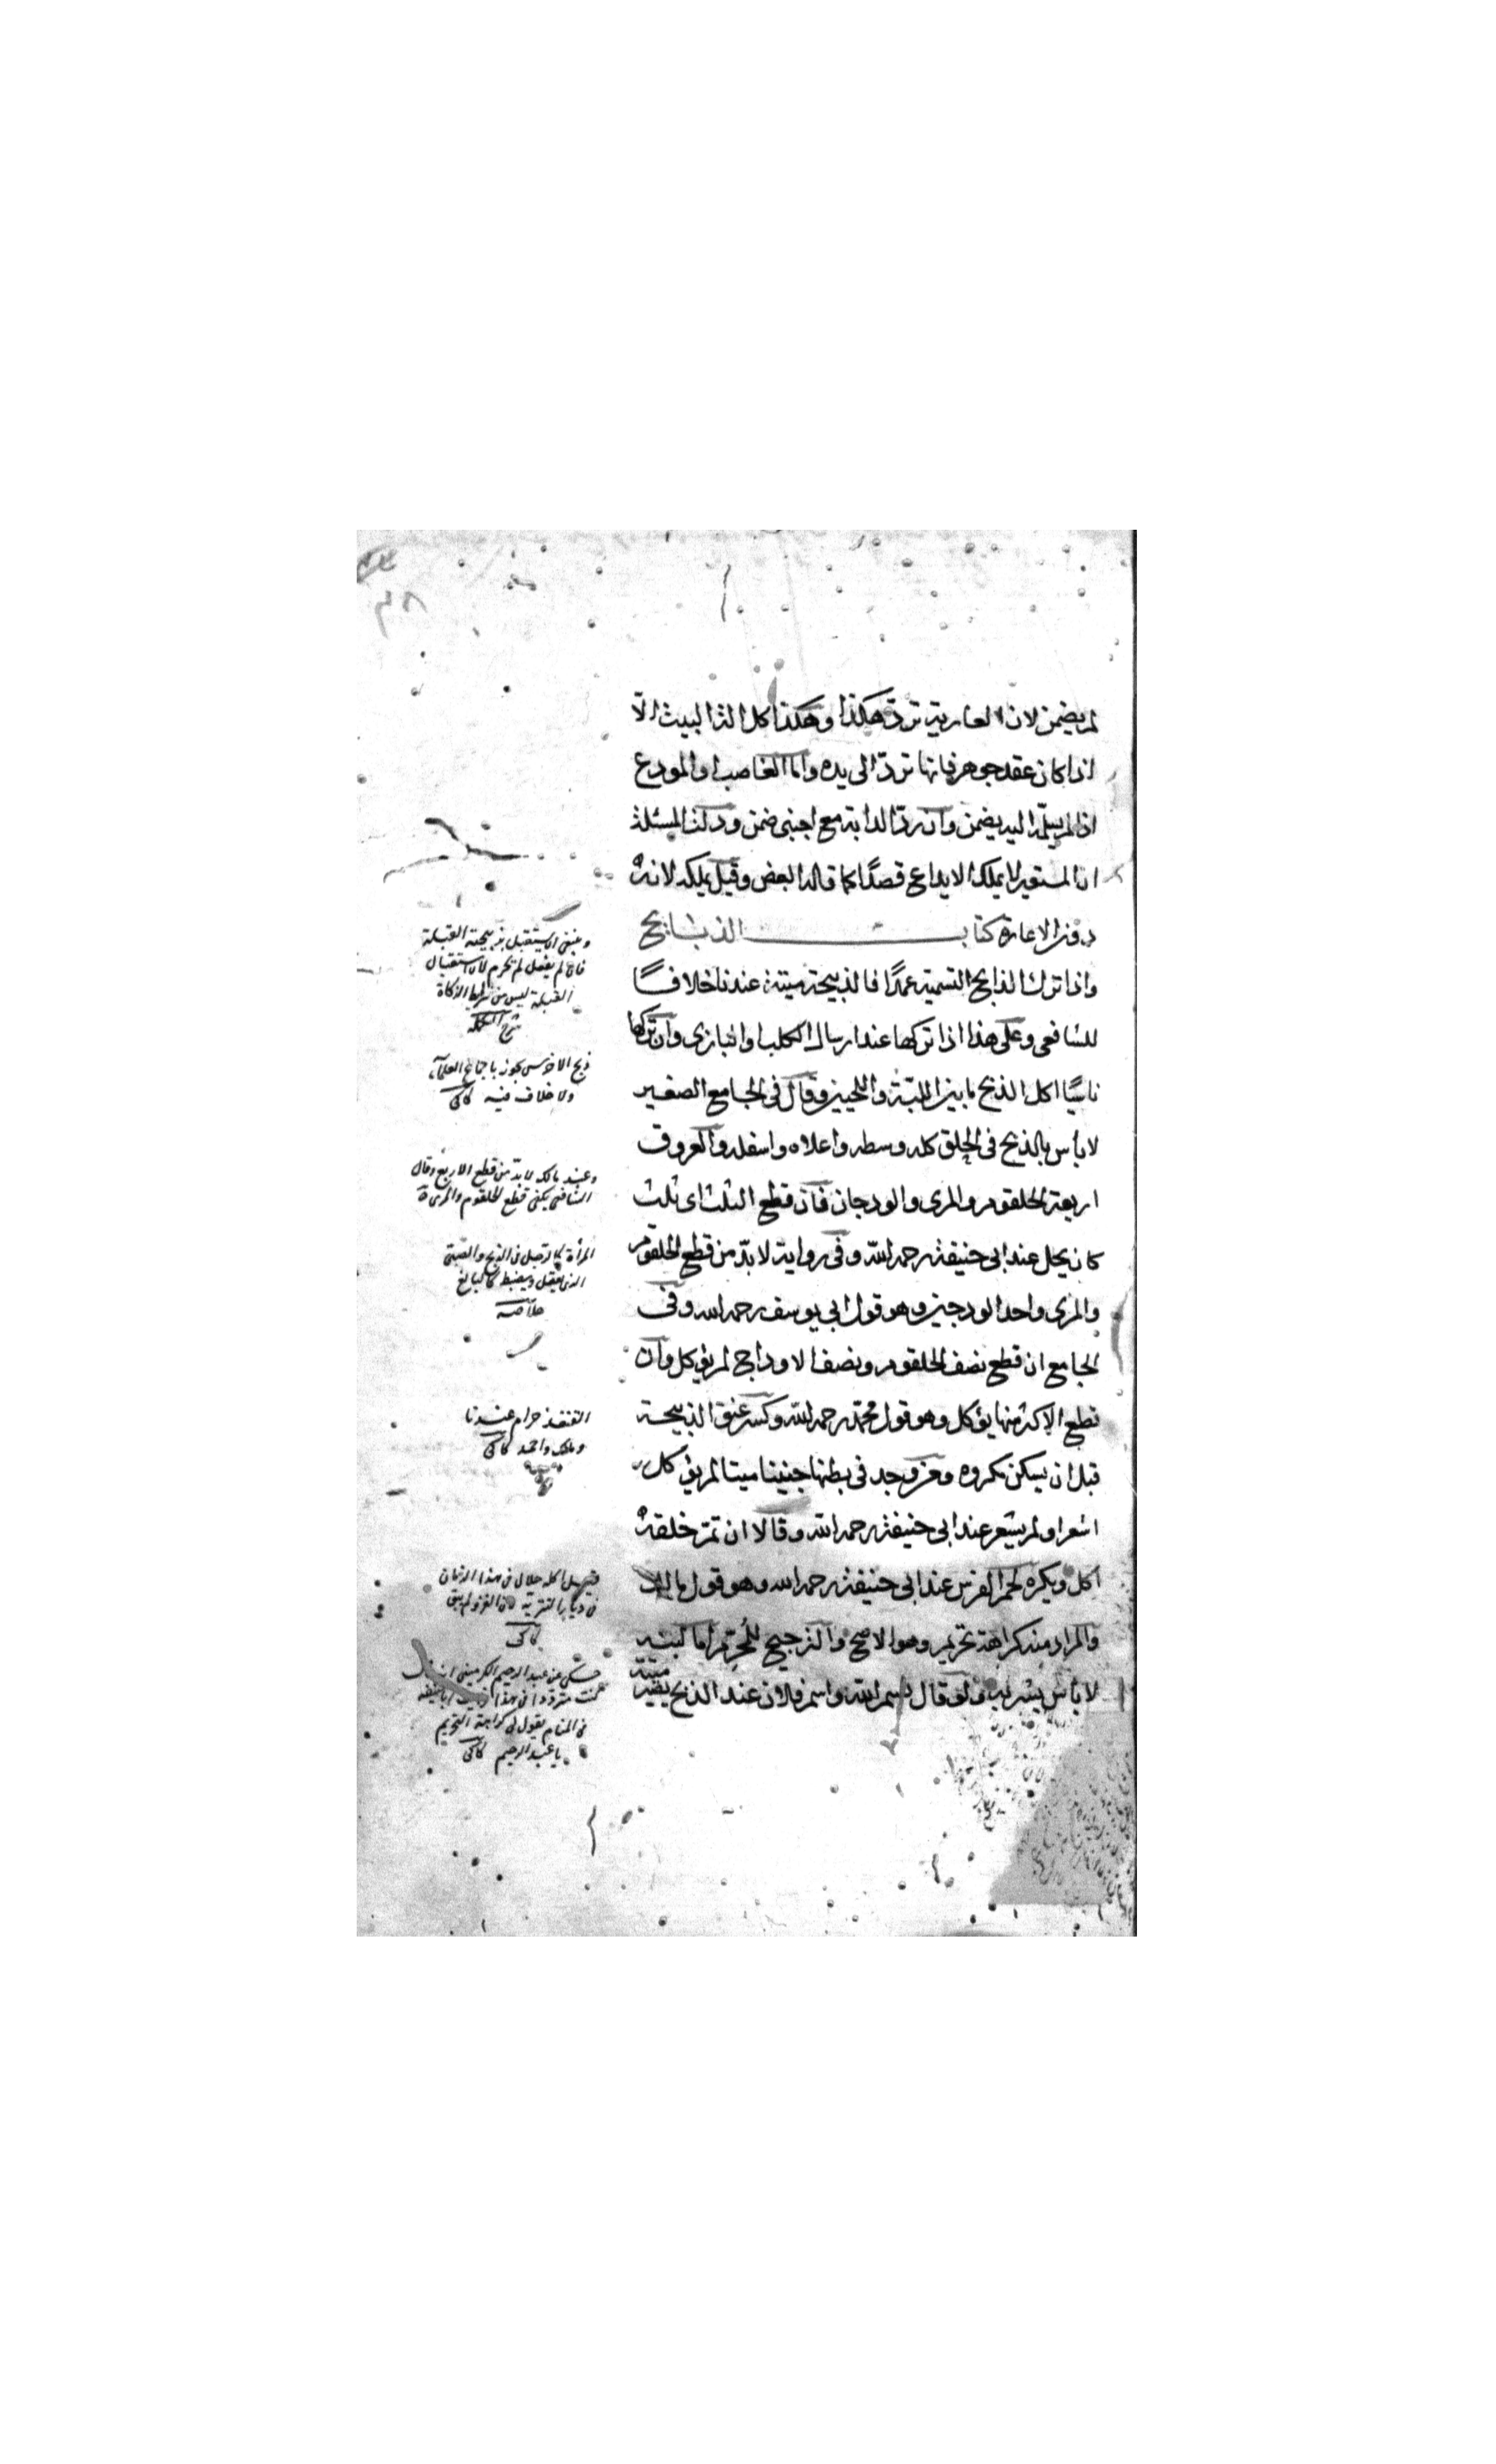 لم يضمن لان العارية ترد هكذا وهكذا كل الذا البيت الا
اذا كان عقد جوهر فانها ترد الى يده واما الغاصب والمودع
اذا لم يسلمه اليه يضمن وان رد الدابة مع اجنبى ضمن ودلت المسئلة
ان المستعير لا يملك الايداع قصدًا كما قاله البعض وقيل يملكه لانه
دون الاعارة كتاب الذبايح
واذا ترك الذابح التسمية عمدًا فالذبيحة ميتة عندنا خلافًا
للشافعى وعلى هذا اذا تركها عند ارسال الكلب والبازى وان تركها
ناسيًا اكل الذبح ما بين اللبة واللحيين وقال فى الجامع الصغير
لا باس بالذبح فى الحلق كله وسطه واعلاه واسفله والعروق
اربعة الحلقوم والمرى والودجان فان قطع الثلث اى ثلث
كان يحل عند ابى حنيفة رحمه الله وفى رواية لا بد من قطع الحلقوم
والمرى واحد الودجين وهو قول ابى يوسف رحمه الله وفى
الجامع ان قطع نصف الحلقوم ونصف الاوداج لم يؤكل وان
قطع الاكثر منها يؤكل وهو قول محمد رحمه الله وكسر عنق الذبيحة
قبل ان يسكن مكروه ومن وجد فى بطنها جنينا ميتا لم يؤكل
اشعر او لم يشعر عند ابى حنيفة رحمه الله وقالا ان تم خلقه
اكل ويكره لحم الفرس عند ابى حنيفة رحمه الله وهو قول مالك
والمراد منه كراهة تحريم وهو الاصح والترجيح للمحرم اما لبنه
لا باس بشربه ولو قال بسم الله واسم فلان عند الذبح يصير ميتة
وينبغى ان يستقبل بذبيحته القبلة
فان لم يفعل لم تحرم لان استقبال
القبلة ليس من شرايط الزكاة
شرح التكملة
ذبح الاخرس يجوز باجماع العلماء
ولا خلاف فيه كاكى
وعند مالك لا بد من قطع الاربع وقال
الشافعى يكفى قطع الحلقوم والمرى
المرأة كالرجل فى الذبح والصبى
الذى يعقل ويضبط كالبالغ
خلاصه
القنفذ حرام عندنا
ومالك واحمد كاكى
قيل اكله حلال فى هذا الزمان
فى ديار التترية لان الغزو لم يبق
كاكى
حكى عن عبد الرحيم الكرمينى انه قال
كنت مترددا فى هذا فرايت ابا حنيفة
فى المنام يقول لى كراهة التحريم
يا عبد الرحيم كاكى